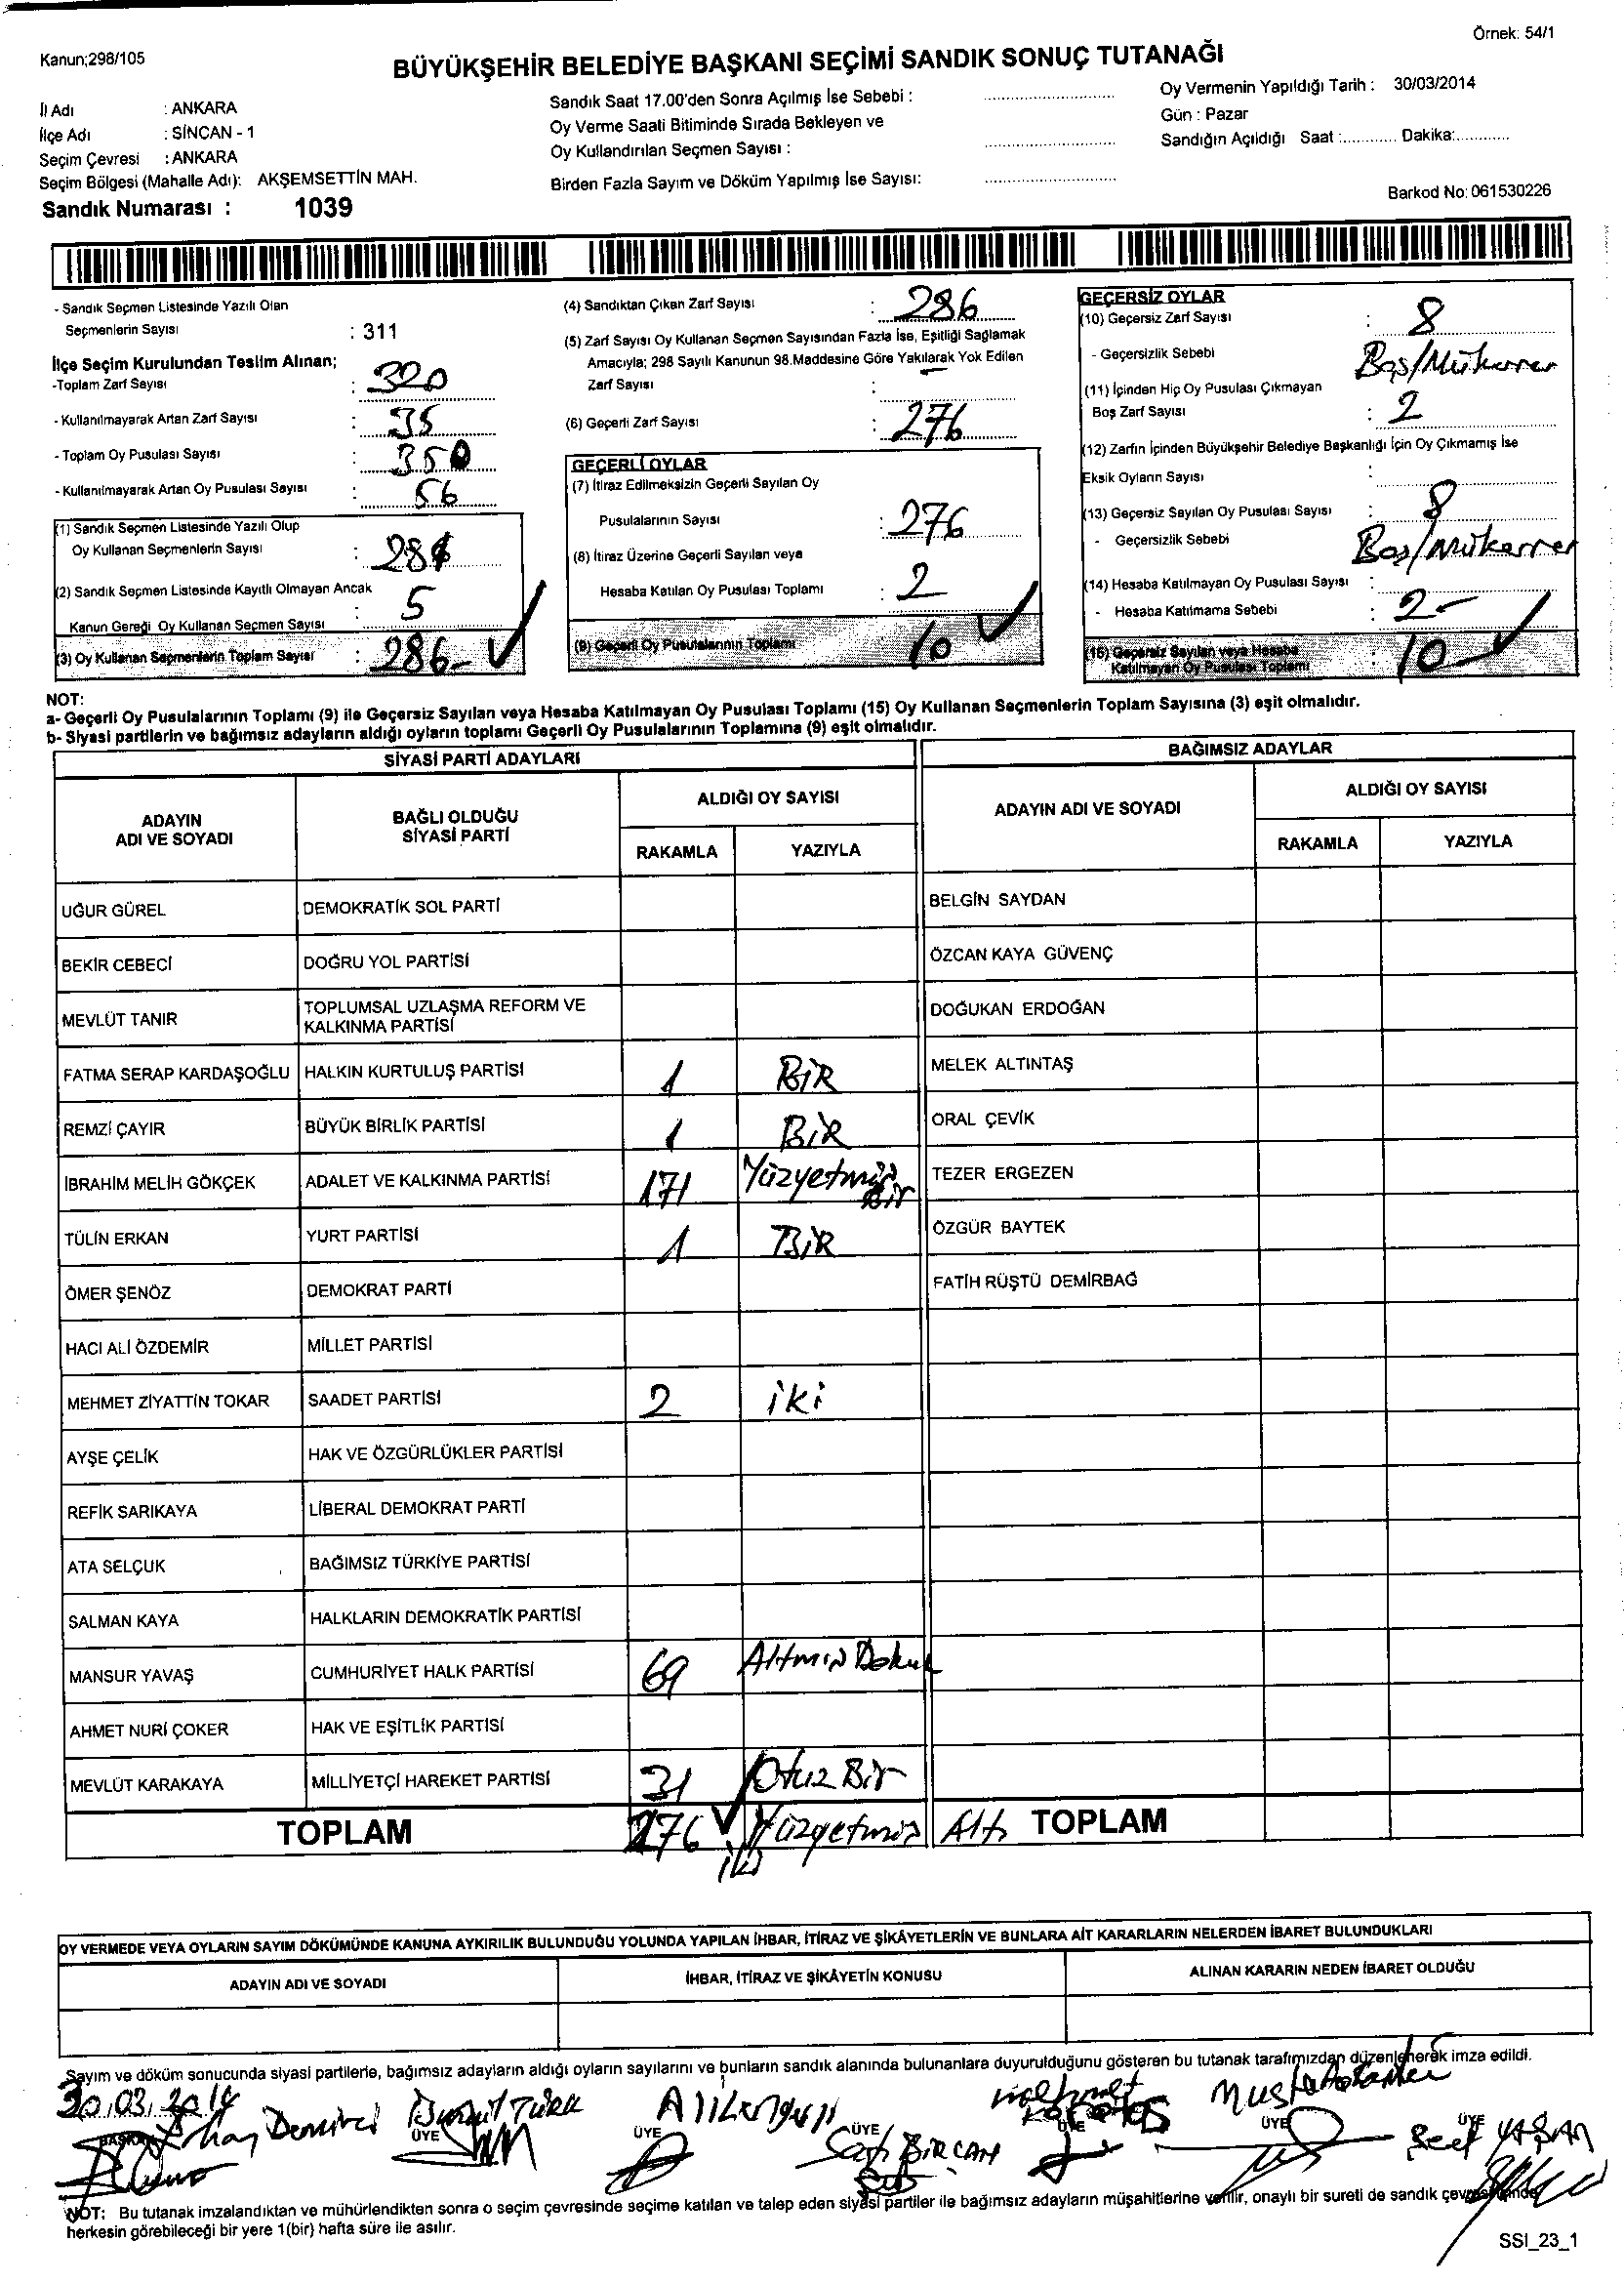 Örnek: 54/1
Kanun;298/105
BÜYÜKŞEHİR BELEDİYE BAŞKANI SEÇİMİ SANDIK SONUÇ TUTANAĞI
İl Adı : ANKARA
İlçe Adı : SİNCAN - 1
Seçim Çevresi : ANKARA
Seçim Bölgesi (Mahalle Adı): AKŞEMSETTİN MAH.
Sandık Numarası : 1039
Sandık Saat 17.00'den Sonra Açılmış İse Sebebi :
Oy Verme Saati Bitiminde Sırada Bekleyen ve
Oy Kullandırılan Seçmen Sayısı :
Birden Fazla Sayım ve Döküm Yapılmış İse Sayısı:
Oy Vermenin Yapıldığı Tarih : 30/03/2014
Gün : Pazar
Sandığın Açıldığı Saat :............ Dakika:...........
Barkod No: 061530226
- Sandık Seçmen Listesinde Yazılı Olan
Seçmenlerin Sayısı : 311
İlçe Seçim Kurulundan Teslim Alınan;
-Toplam Zarf Sayısı : 320
- Kullanılmayarak Artan Zarf Sayısı : 35
- Toplam Oy Pusulası Sayısı : 350
- Kullanılmayarak Artan Oy Pusulası Sayısı : 56
(1) Sandık Seçmen Listesinde Yazılı Olup
Oy Kullanan Seçmenlerin Sayısı :
(2) Sandık Seçmen Listesinde Kayıtlı Olmayan Ancak
Kanun Gereği Oy Kullanan Seçmen Sayısı : 5
(3) Oy Kullanan Seçmenlerin Toplam Sayısı : 286
(4) Sandıktan Çıkan Zarf Sayısı : 286
(5) Zarf Sayısı Oy Kullanan Seçmen Sayısından Fazla İse, Eşitliği Sağlamak
Amacıyla; 298 Sayılı Kanunun 98.Maddesine Göre Yakılarak Yok Edilen
Zarf Sayısı : -
(6) Geçerli Zarf Sayısı : 276
GEÇERLİ OYLAR
(7) İtiraz Edilmeksizin Geçerli Sayılan Oy
Pusulalarının Sayısı : 276
(8) İtiraz Üzerine Geçerli Sayılan veya
Hesaba Katılan Oy Pusulası Toplamı : 2
(9) Geçerli Oy Pusulalarının Toplamı 10
GEÇERSİZ OYLAR
(10) Geçersiz Zarf Sayısı : 8
- Geçersizlik Sebebi Boş/Mükerrer
(11) İçinden Hiç Oy Pusulası Çıkmayan
Boş Zarf Sayısı : 2
(12) Zarfın İçinden Büyükşehir Belediye Başkanlığı İçin Oy Çıkmamış İse
Eksik Oyların Sayısı :
(13) Geçersiz Sayılan Oy Pusulası Sayısı : 8
- Geçersizlik Sebebi Boş/Mükerrer
(14) Hesaba Katılmayan Oy Pusulası Sayısı :
- Hesaba Katılmama Sebebi : 2-
(15) Geçersiz Sayılan veya Hesaba
Katılmayan Oy Pusulası Toplamı : 10
NOT:
a- Geçerli Oy Pusulalarının Toplamı (9) ile Geçersiz Sayılan veya Hesaba Katılmayan Oy Pusulası Toplamı (15) Oy Kullanan Seçmenlerin Toplam Sayısına (3) eşit olmalıdır.
b- Siyasi partilerin ve bağımsız adayların aldığı oyların toplamı Geçerli Oy Pusulalarının Toplamına (9) eşit olmalıdır.
SİYASİ PARTİ ADAYLARI
ADAYIN
ADI VE SOYADI
BAĞLI OLDUĞU
SİYASİ PARTİ
ALDIĞI OY SAYISI
RAKAMLA YAZIYLA
UĞUR GÜREL DEMOKRATİK SOL PARTİ
BEKİR CEBECİ DOĞRU YOL PARTİSİ
MEVLÜT TANIR TOPLUMSAL UZLAŞMA REFORM VE
KALKINMA PARTİSİ
FATMA SERAP KARDAŞOĞLU HALKIN KURTULUŞ PARTİSİ 1 BİR
REMZİ ÇAYIR BÜYÜK BİRLİK PARTİSİ 1 BİR
İBRAHİM MELİH GÖKÇEK ADALET VE KALKINMA PARTİSİ 171 Yüzyetmiş
Bir
TÜLİN ERKAN YURT PARTİSİ 1 BİR
ÖMER ŞENÖZ DEMOKRAT PARTİ
HACI ALİ ÖZDEMİR MİLLET PARTİSİ
MEHMET ZİYATTİN TOKAR SAADET PARTİSİ 2 iki
AYŞE ÇELİK HAK VE ÖZGÜRLÜKLER PARTİSİ
REFİK SARIKAYA LİBERAL DEMOKRAT PARTİ
ATA SELÇUK BAĞIMSIZ TÜRKİYE PARTİSİ
SALMAN KAYA HALKLARIN DEMOKRATİK PARTİSİ
MANSUR YAVAŞ CUMHURİYET HALK PARTİSİ 69 Altmış Dokuz
AHMET NURİ ÇOKER HAK VE EŞİTLİK PARTİSİ
MEVLÜT KARAKAYA MİLLİYETÇİ HAREKET PARTİSİ 31 Otuz Bir
TOPLAM 276 iki Yüzyetmiş Altı
BAĞIMSIZ ADAYLAR
ADAYIN ADI VE SOYADI
ALDIĞI OY SAYISI
RAKAMLA YAZIYLA
BELGİN SAYDAN
ÖZCAN KAYA GÜVENÇ
DOĞUKAN ERDOĞAN
MELEK ALTINTAŞ
ORAL ÇEVİK
TEZER ERGEZEN
ÖZGÜR BAYTEK
FATİH RÜŞTÜ DEMİRBAĞ
TOPLAM
OY VERMEDE VEYA OYLARIN SAYIM DÖKÜMÜNDE KANUNA AYKIRILIK BULUNDUĞU YOLUNDA YAPILAN İHBAR, İTİRAZ VE ŞİKÂYETLERİN VE BUNLARA AİT KARARLARIN NELERDEN İBARET BULUNDUKLARI
ADAYIN ADI VE SOYADI İHBAR, İTİRAZ VE ŞİKÂYETİN KONUSU ALINAN KARARIN NEDEN İBARET OLDUĞU
Sayım ve döküm sonucunda siyasi partilerle, bağımsız adayların aldığı oyların sayılarını ve bunların sandık alanında bulunanlara duyurulduğunu gösteren bu tutanak tarafımızdan düzenlenerek imza edildi.
30.03.2014
BAŞKAN Demirci
ÜYE TÜRK
ÜYE
ÜYE BİRCAN
ÜYE
ÜYE
ÜYE YAŞAN
NOT: Bu tutanak imzalandıktan ve mühürlendikten sonra o seçim çevresinde seçime katılan ve talep eden siyasi partiler ile bağımsız adayların müşahitlerine verilir, onaylı bir sureti de sandık çevresinde
herkesin görebileceği bir yere 1(bir) hafta süre ile asılır.
SSI_23_1